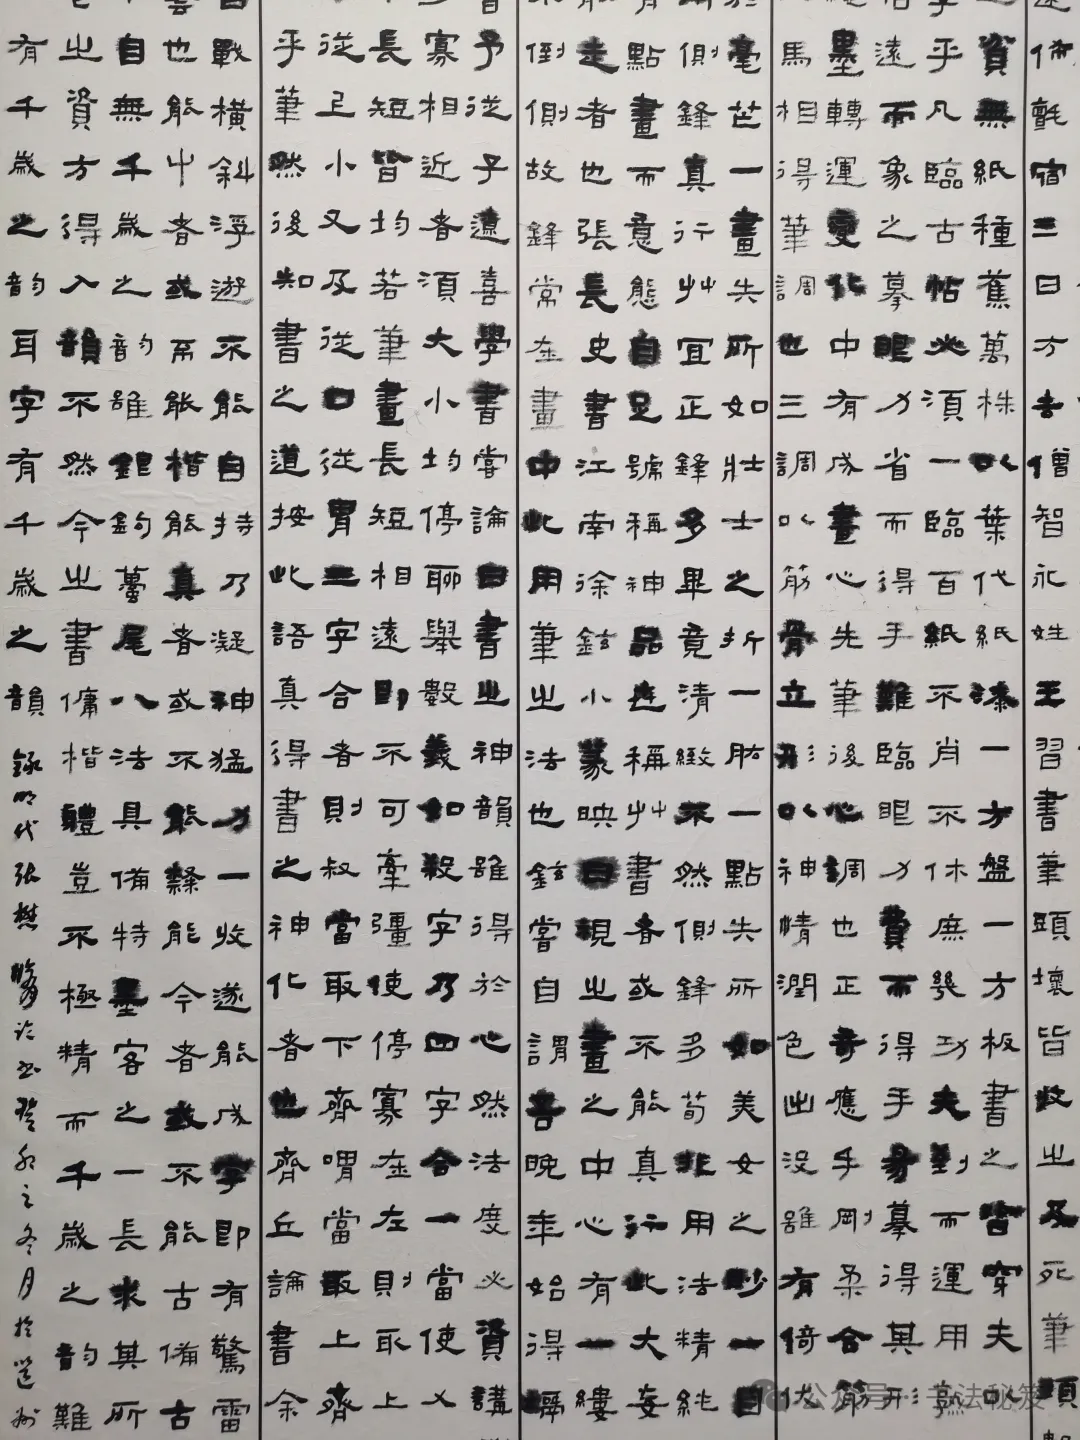 氈宿三日方去僧智永姓王習書筆頭壞皆收之及死筆頭
資無紙種蕉萬株以葉代紙漆一方盤一方板書之皆穿夫以
乎凡臨古帖必須一臨百紙不肖不休庶幾功夫到而運用熟
遠而象之摹眼力省而得手難臨眼力費而得手易摹得其形
墨轉運變化中有成畫心先筆後心調也正奇應手剛柔合節
馬相得筆調也三調以筋骨立形以神情潤色出沒雖有倚伏
毫芒一畫失所如壯士之折一肱一點失所如美女之眇一目
側鋒真行艸宜正鋒多畢竟清緻不然側鋒多苟非用法精純
點畫而意態自足號稱神品世稱艸書者或不能真行此大妄
走者也張長史書江南徐鉉小篆映日視之畫之中心有一縷
倒側故鋒常在畫中此用筆之法也鉉嘗自謂吾晚年始得竵
予從子遼喜學書嘗論曰書之神韻雖得於心然法度必資講
寡相近者須大小均停聊舉數義如殺字乃四字合一當使乂
長短皆均若筆畫長短相遠即不可牽彊使停寡在左則取上
從上小又及從口從胃三字合者則叔當取下齊喟當取上齊
乎筆然後知書之道按此語真得書之神化者也齊丘論書余
戰橫斜浮遊不能自持乃凝神猛力一收遂能成字即有驚雷
也能艸者或不能楷能真者或不能隸能今者或不能古備古
自無千歲之韵雖銀鉤蠆尾八法具備特墨客之一長求其所
之資方得入韻不然今之書傭楷體豈不極精而千歲之韵難
有千歲之韵耳字有千歲之韻
錄明代張懋論書癸卯之冬月於
公众号